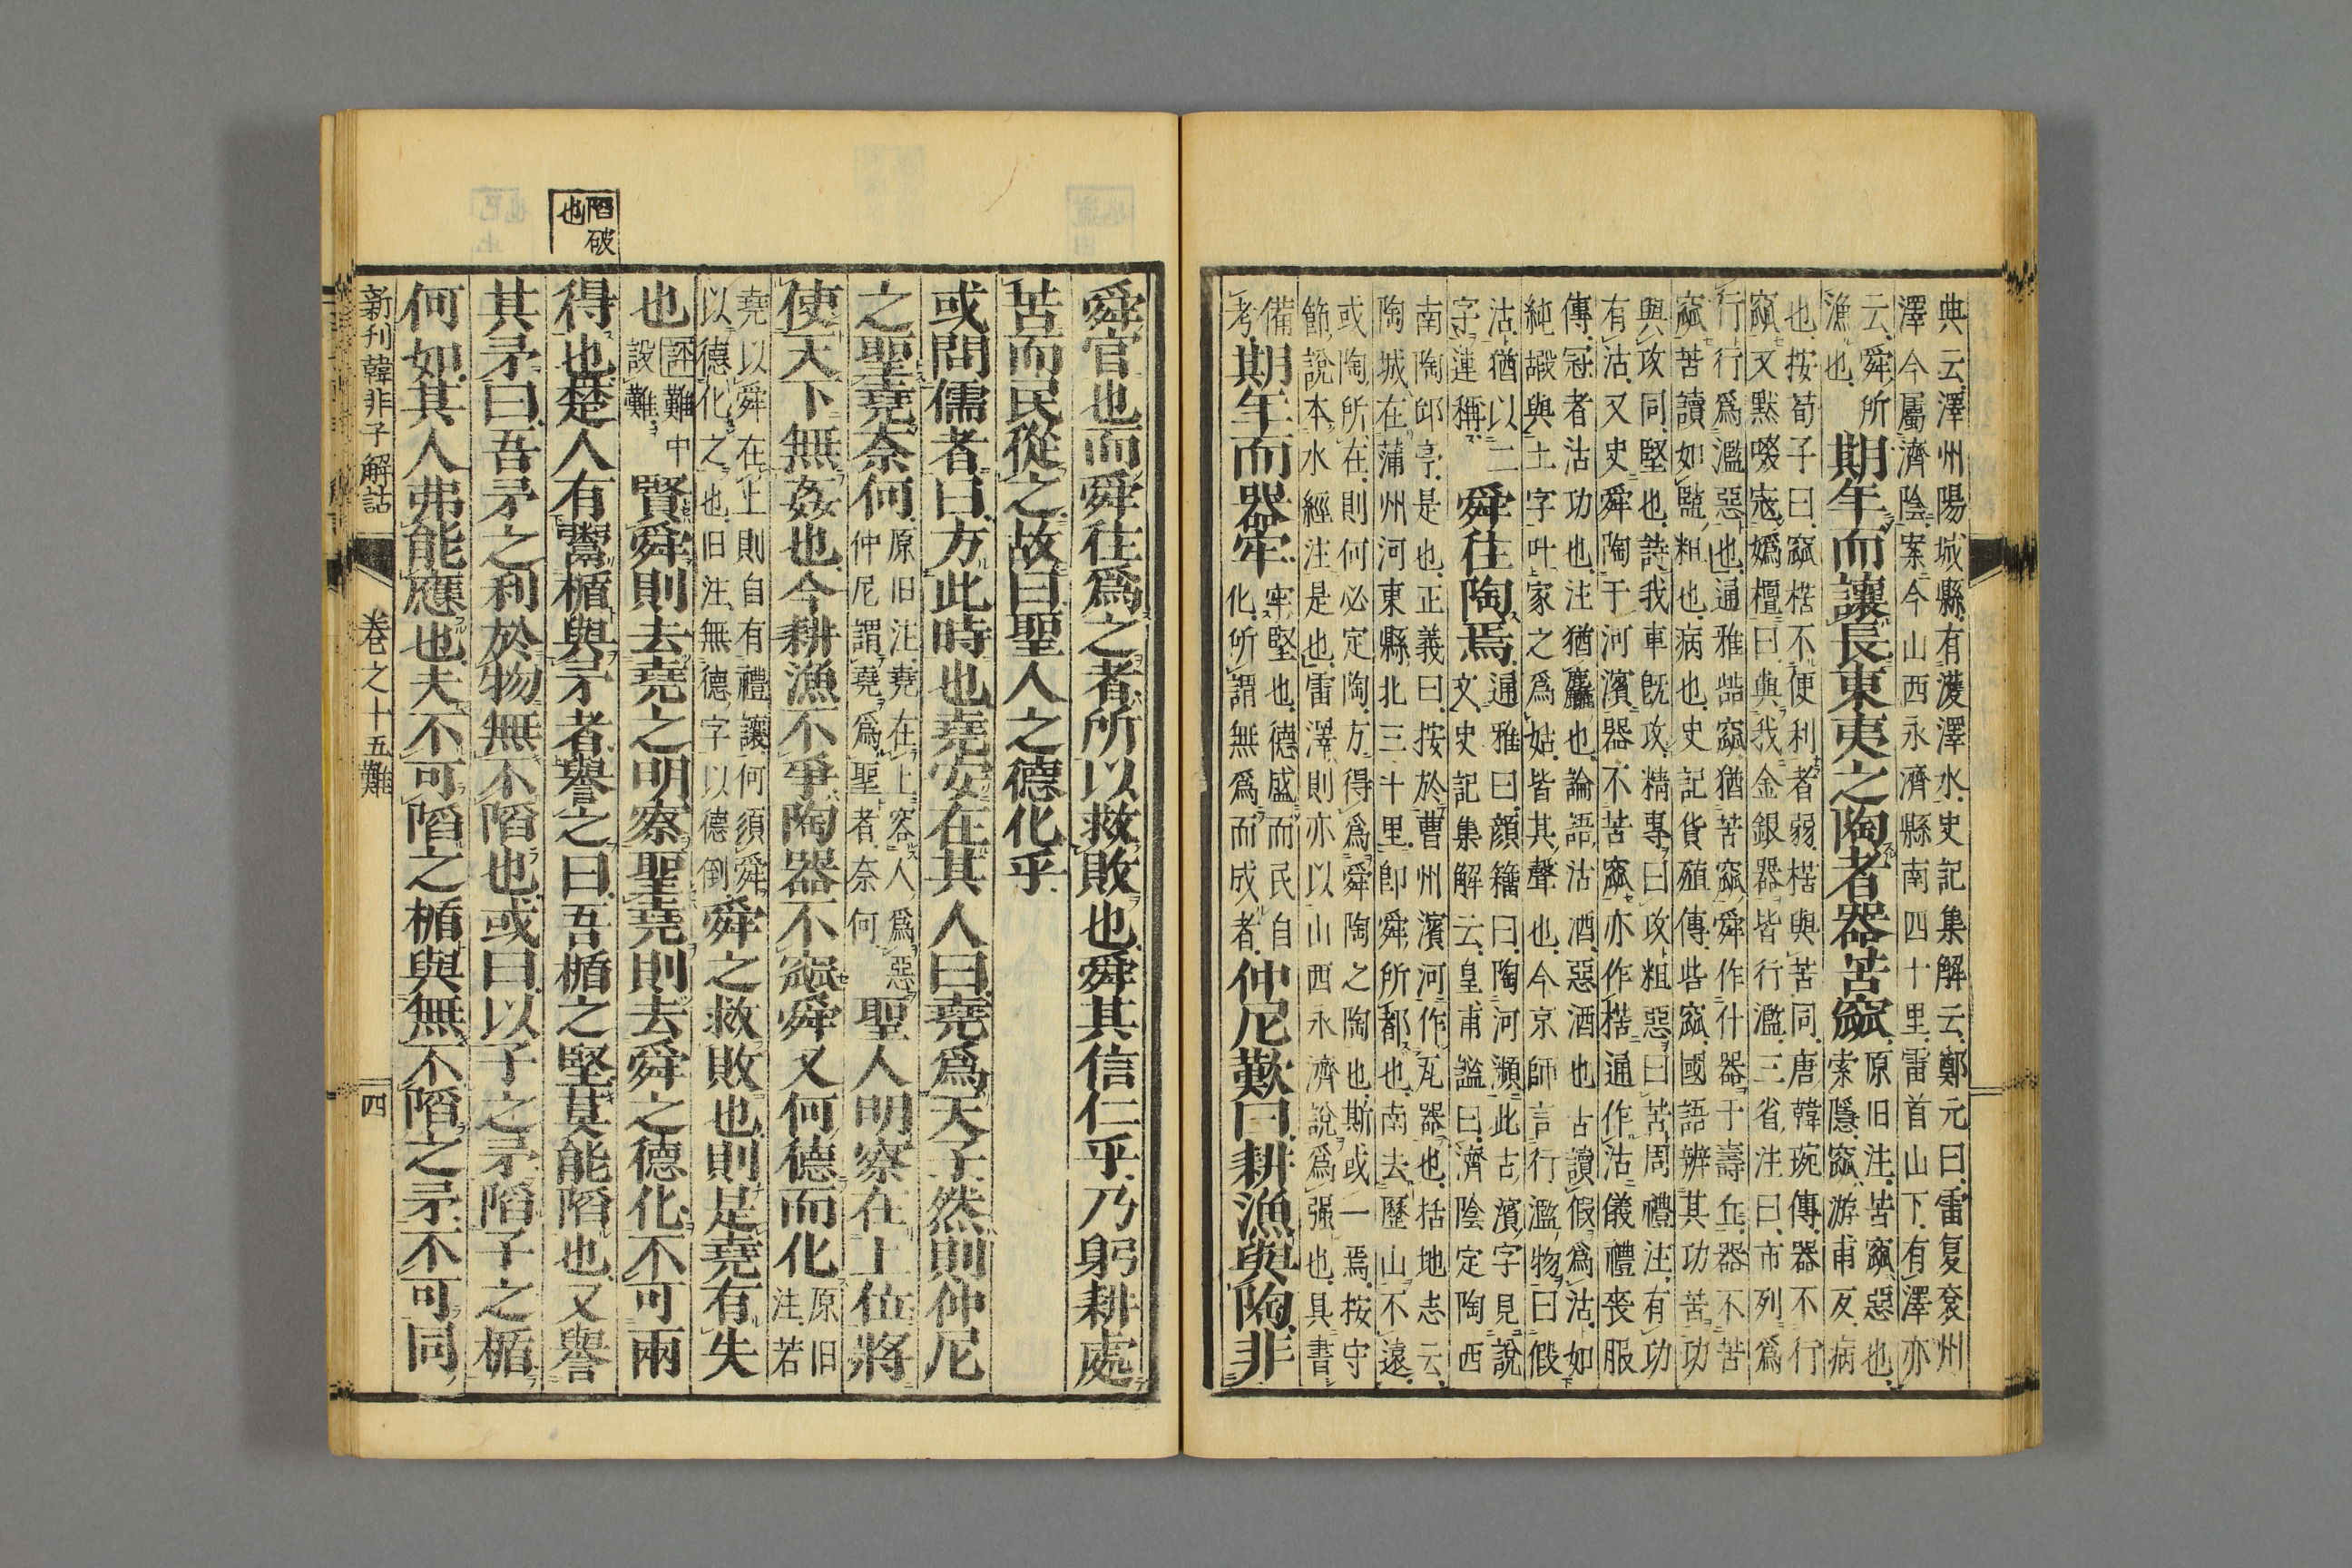 典云澤州陽城縣有濩澤水史記集解云鄭元曰雷夏兗州
澤今屬濟陰案今山西永濟縣南四十里雷首山下有澤亦
云舜所
漁也
期年而讓長東夷之陶者器苦窳
原旧注苦窳惡也
索隱窳游甫反病
也按荀子曰窳楛不便利者弱楛與苦同唐韓琬傳器不行
窳又默啜寇嬀檀曰與我金銀器皆行濫三省注曰市列爲
行行爲濫惡也通雅呰窳猶苦窳舜作什器于壽丘器不苦
窳苦讀如盬粗也病也史記貨殖傳呰窳國語辨其功苦功
與攻同堅也詩我車既攻精專曰攻粗惡曰苦周禮注有功
有沽又史舜陶于河濱器不苦窳亦作楛通作沽儀禮喪服
傳冠者沽功也注猶麤也論語沽酒惡酒也古讀假爲沽如
純嘏與土字叶家之爲姑皆其聲也今京師言行濫物曰假
沽猶以二
字連稱
舜往陶焉
通雅曰顔籀曰陶河瀕此古濱字見説
文史記集解云皇甫謐曰濟陰定陶西
南陶邱亭是也正義曰按於曹州濱河作瓦器也括地志云
陶城在蒲州河東縣北三十里卽舜所都也南去歷山不遠
或陶所在則何必定陶方得爲舜陶之陶也斯或一焉按守
節說本水經注是也雷澤則亦以山西永濟説爲强也具書
備
考
期年而器牢
牢堅也德盛而民自
化所謂無爲而成者
仲尼歎曰耕漁與陶非
舜官也而舜往爲之者所以救敗也舜其信仁乎乃躬耕處
苦而民從之故曰聖人之德化乎
或問儒者曰方此時也堯安在其人曰堯爲天子然則仲尼
之聖堯奈何
原旧注堯在上容人爲惡
仲尼謂堯爲聖者奈何
聖人明察在上位將
使天下無姦也今耕漁不爭陶器不窳舜又何德而化
原旧
注若
堯以舜在上則自有禮讓何須舜
以德化之也旧注無德字以德倒
舜之救敗也則是堯有失
也
評難中
設難
賢舜則去堯之明察聖堯則去舜之德化不可兩
得也楚人有鬻楯與矛者譽之曰吾楯之堅莫能陷也又譽
其矛曰吾矛之利於物無不陷也或曰以子之矛陷子之楯
何如其人弗能應也夫不可陷之楯與無不陷之矛不可同
陷破
也
新刊韓非子解詁
卷之十五難
四